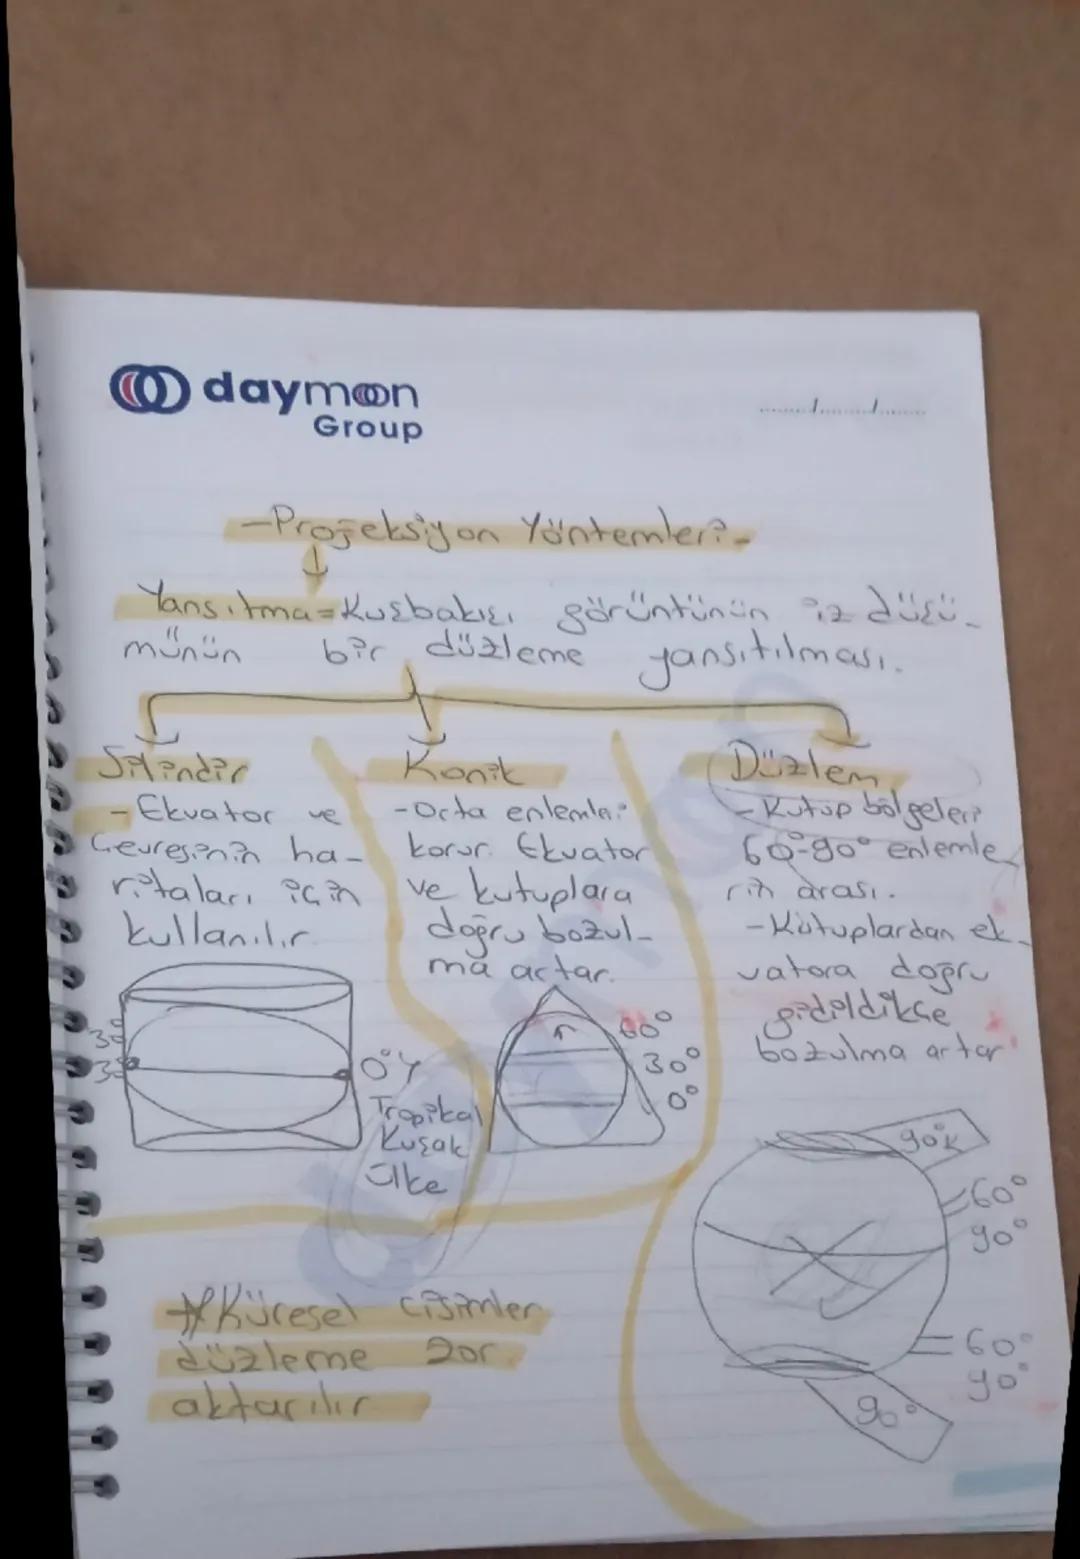 daymoon
Group
....../....../......
-Projeksiyon Yöntemleri-
Yansıtma=Kuşbakışı görüntünün iz düşü-
münün bir düzleme yansıtılması.
Silindir
- Ekvator ve
Çevresinin ha-
ritaları için
kullanılır
0° Y
Tropikal
Kuşak
ülke
Konik
-Orta enlemleri
korur. Ekvator
ve kutuplara
doğru bozul-
ma artar.
60°
30°
0°
Düzlem
- Kutup bölgeleri
60-90° enlemle
rin arası.
-Kutuplardan ek-
vatora doğru
gidildikçe
bozulma artar
90°k
60°
90°
60°
90°
90°
*Küresel cisimler
düzleme zor
aktarılır
daymoon